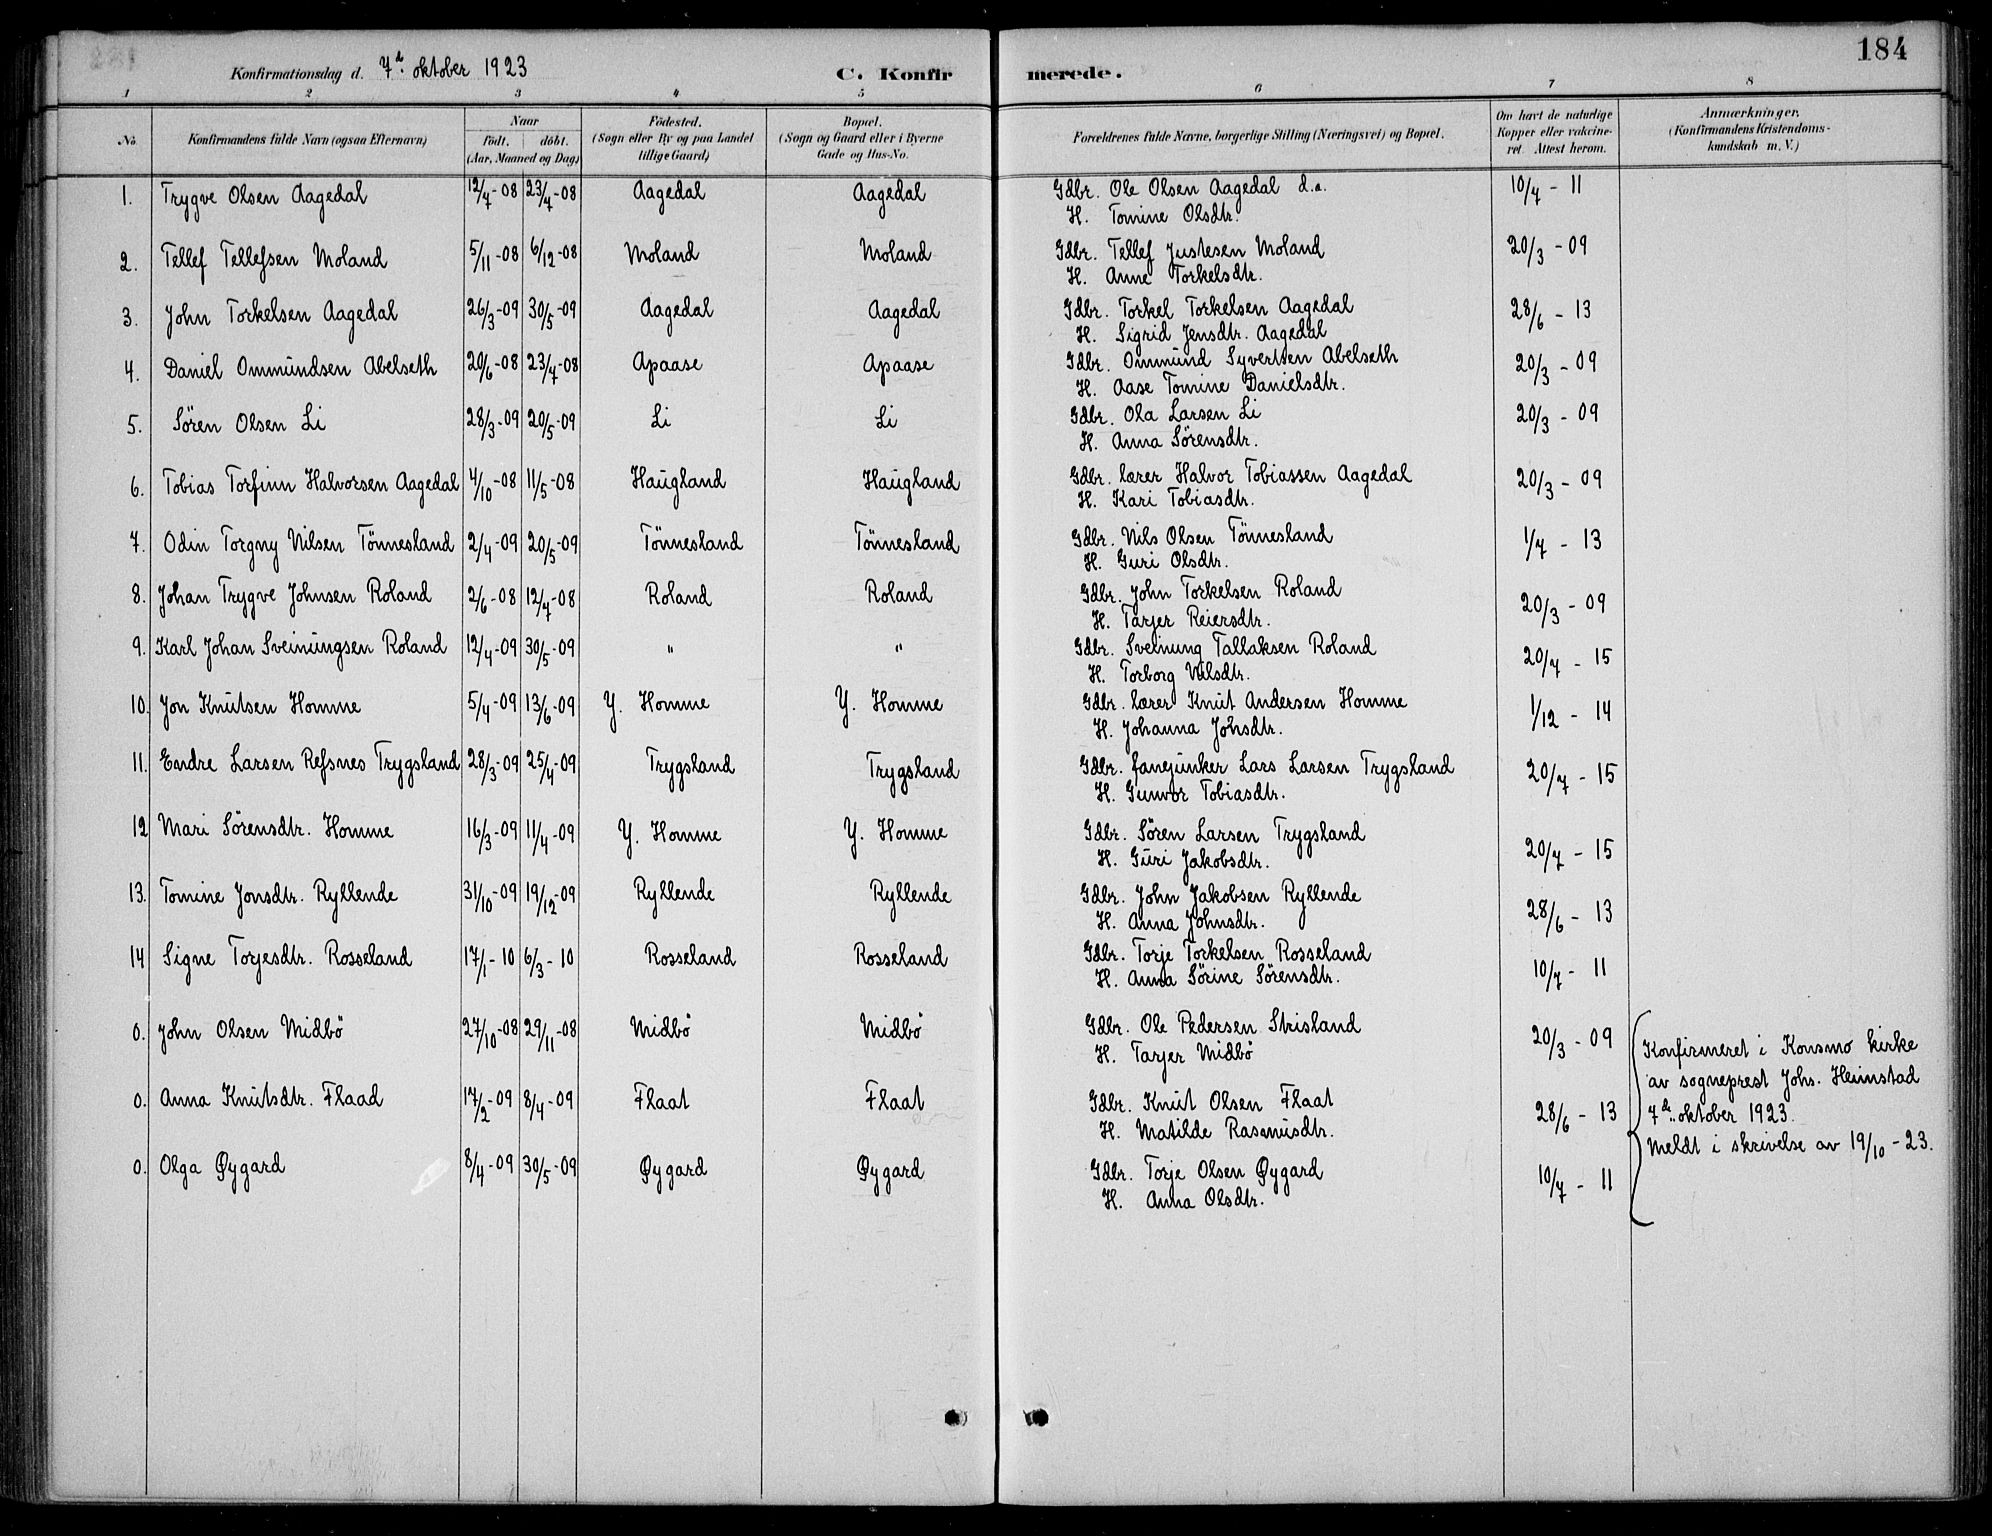 184
Konfirmationsdag d. 7de. oktober 1923 C. Konfirmerede.
1 2 3 4 5 6 7 8
No. Konfirmandens fulde Navn (ogsaa Efternavn) Naar født. døbt. (Aar, Maaned og Dag) Fødested. (Sogn eller By og paa Landet tillige Gaard) Bopæl. (Sogn og Gaard eller i Byerne Gade og Hus-No. Forældrenes fulde Navne, borgerlige Stilling (Næringsvei) og Bopæl. Om havt de naturlige Kopper eller vakcineret. Attest herom. Anmærkninger. (Konfirmandens Kristendomskundskab m. V.)
1. Trygve Olsen Aagedal 12/4-08 23/4-08 Aagedal Aagedal Gdbr. Ole Olsen Aagedal d.e. 10/7 - 11
H. Tomine Olsdtr.
2. Tellef Tellefsen Moland 5/11-08 6/12-08 Moland Moland Gdbr. Tellef Justesen Moland 20/3 - 09
H. Anne Torkelsdtr.
3. John Torkelsen Aagedal 26/3-09 30/5-09 Aagedal Aagedal Gdbr. Torkel Torkelsen Aagedal 28/6 - 13
H. Sigrid Jensdtr. Aagedal
4. Daniel Ommundsen Abelseth 20/6-08 23/7-08 Apaase Apaase Gdbr. Ommund Syvertsen Abelseth 20/3 - 09
H. Aase Tomine Danielsdtr.
5. Sören Olsen Li 28/3-09 20/5-09 Li Li Gdbr. Ola Larsen Li 20/3 - 09
H. Anna Sörensdtr.
6. Tobias Torfinn Halvorsen Aagedal 4/10-08 11/5-08 Haugland Haugland Gdbr. lærer Halvor Tobiassen Aagedal 20/3 - 09
H. Kari Tobiasdtr.
7. Odin Torgny Nilsen Tönnesland 2/4-09 20/5-09 Tönnesland Tönnesland Gdbr. Nils Olsen Tönnesland 1/7 - 13
H. Guri Olsdtr.
8. Johan Trygve Johnsen Roland 2/6-08 12/7-08 Roland Roland Gdbr. John Torkelsen Roland 20/3 - 09
H. Tarjer Reiersdtr.
9. Karl Johan Sveinungsen Roland 12/4-09 30/5-09 " " Gdbr. Sveinung Tallaksen Roland 20/7 - 15
H. Torborg Nilsdtr.
10. Jon Knutsen Homme 5/4-09 13/6-09 Y. Homme Y. Homme Gdbr. lærer Knut Andersen Homme 1/12 - 14
H. Johanna Johsdtr.
11. Endre Larsen Refsnes Trygsland 28/3-09 25/4-09 Trygsland Trygsland Gdbr. fanejunker Lars Larsen Trygsland 20/7 - 15
H. Gunvor Tobiasdtr.
12 Mari Sörensdtr. Homme 16/3-09 11/4-09 Y. Homme Y. Homme Gdbr. Sören Larsen Trygsland 20/7 - 15
H. Guri Jakobsdtr.
13. Tomine Jonsdtr. Ryllende 31/10-09 19/12-09 Ryllende Ryllende Gdbr. John Jakobsen Ryllende 28/6 - 13
H. Anna Johnsdtr.
14 Signe Torjesdtr. Rosseland 17/1-10 6/3-10 Rosseland Rosseland Gdbr. Torje Torkelsen Rosseland 10/7 - 11
H. Anna Sörine Sörensdtr.
0. John Olsen Midbö 27/10-08 29/11-08 Midbö Midbö Gdbr. Ole Pedersen Strisland 20/3 - 09
H. Tarjer Midbö
0. Anna Knutsdtr. Flaad 17/2-09 8/4-09 Flaat Flaat Gdbr. Knut Olsen Flaat 28/6 - 13
H. Matilde Rasmusdtr.
0. Olga Øygard 8/4-09 30/5-09 Øygard Øygard Gdbr. Torje Olsen Øygard 10/7 - 11
H. Anna Olsdtr.
Konfirmeret i Konsmo kirke
av sogneprest Johs. Heimstad
7de. oktober 1923.
Meldt i skrivelse av 19/10 - 23.